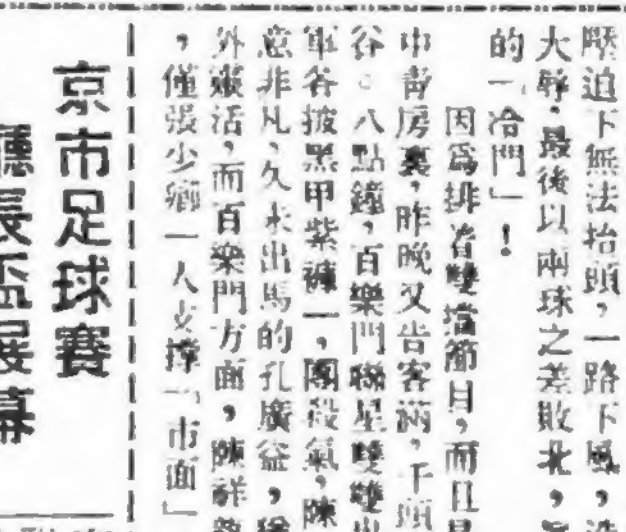 壓迫下無法抬頭，一路下風，
大辱，最後以兩球之差敗北，
的「冷門」！
因爲排着雙檔節目，而且
中青房裏，昨晚又告客滿，千頭
谷。八點鐘，百樂門聯星雙雙出
軍各披黑甲紫褲一，團殺氣，陳
意非凡，久未出馬的孔廣益，
外靈活，而百樂門方面，陳祥
，僅張少卿一人支撐「市面」
京市足球賽
廳長盃展幕